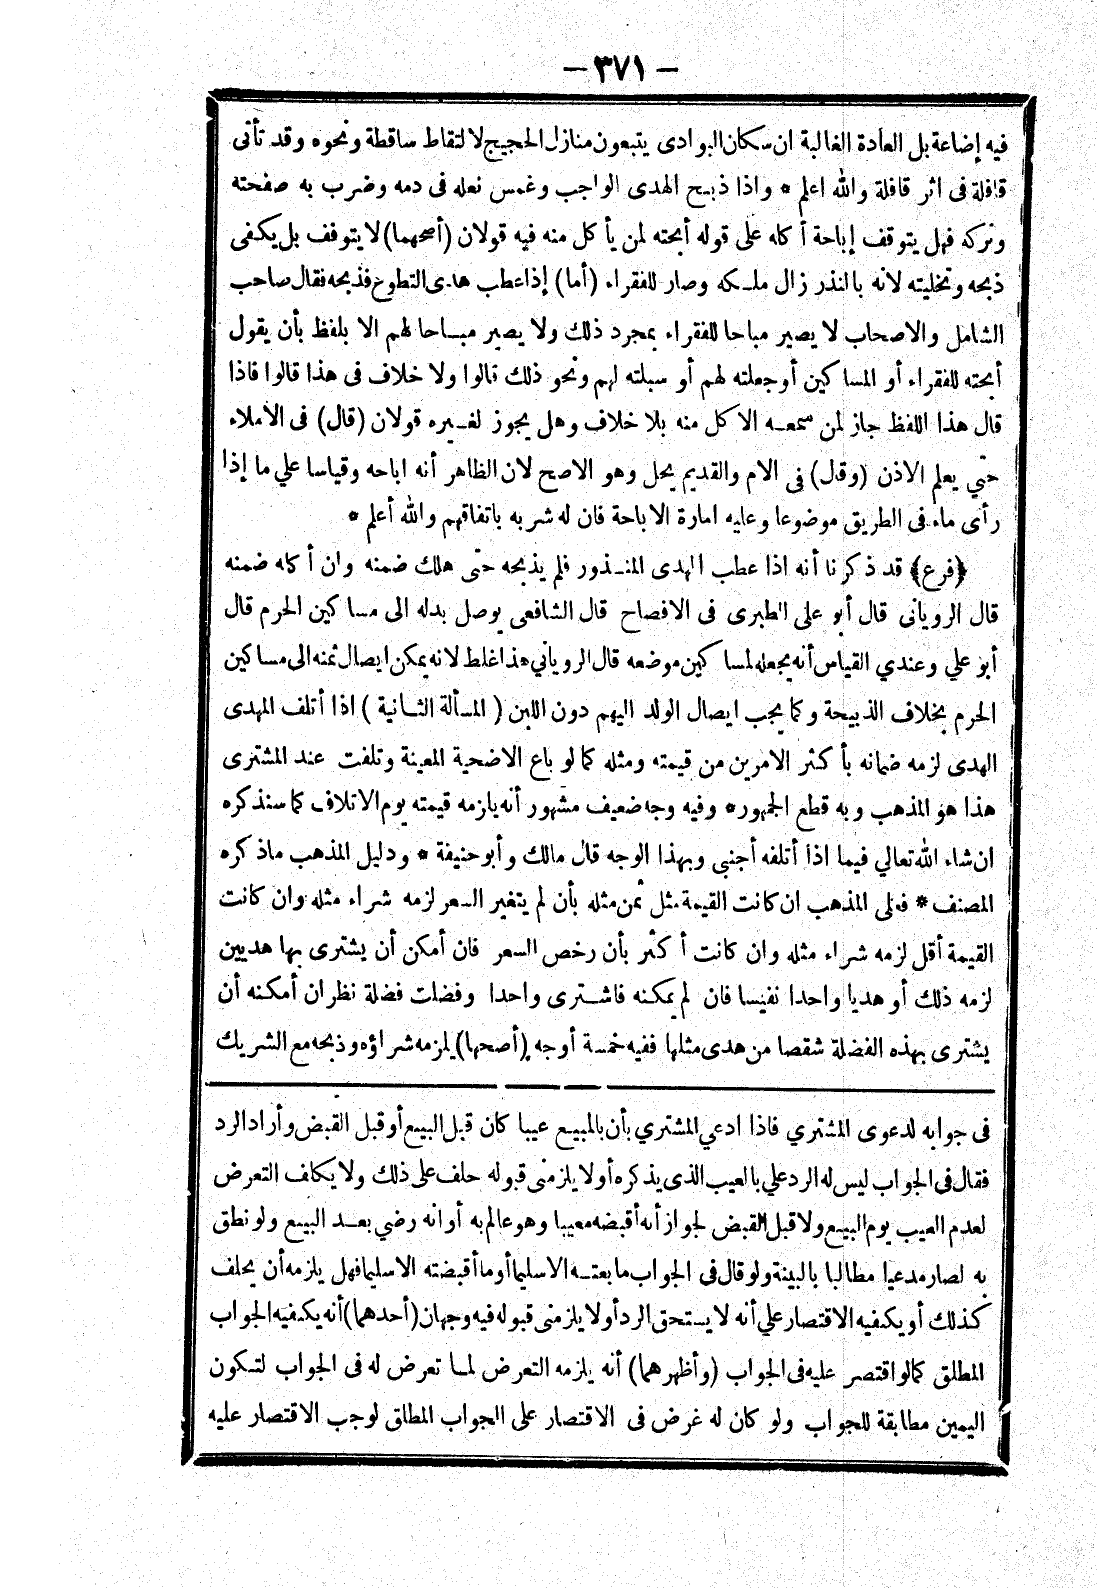 — ٣٧١ —
فيه إضاعة بل العادة الغالبة ان سكان البوادى يتبعون منازل الحجيج لالتقاط ساقطة ونحوه وقد تأتى
قافلة فى اثر قافلة والله اعلم * واذا ذبح الهدى الواجب وغمس نعله فى دمه وضرب به صفحته
وتركه فهل يتوقف إباحة أكله على قوله أبحته لمن يأكل منه فيه قولان (أصحهما) لا يتوقف بل يكفى
ذبحه وتخليته لانه بالنذر زال ملكه وصار للفقراء (أما) إذا عطب هدى التطوع فذبحه فقال صاحب
الشامل والاصحاب لا يصير مباحا للفقراء بمجرد ذلك ولا يصير مباحا لهم الا بلفظ بأن يقول
أبحته للفقراء أو المساكين أو جعلته لهم أو سبلته لهم ونحو ذلك قالوا ولا خلاف فى هذا قالوا فاذا
قال هذا اللفظ جاز لمن سمعه الاكل منه بلا خلاف وهل يجوز لغيره قولان (قال) فى الاملاء
حتي يعلم الاذن (وقال) فى الام والقديم يحل وهو الاصح لان الظاهر أنه اباحه وقياسا علي ما إذا
رأى ماء فى الطريق موضوعا وعليه امارة الاباحة فان له شربه باتفاقهم والله أعلم *
﴿فرع﴾ قد ذكرنا أنه اذا عطب الهدى المنذور فلم يذبحه حتى هلك ضمنه وان أكله ضمنه
قال الرويانى قال أبو على الطبرى فى الافصاح قال الشافعى يوصل بدله الى مساكين الحرم قال
أبو علي وعندي القياس أنه يجعله لمساكين موضعه قال الروياني هذا غلط لانه يمكن ايصال ثمنه الى مساكين
الحرم بخلاف الذبيحة وكما يجب ايصال الولد اليهم دون اللبن ( المسألة الثانية ) اذا أتلف المهدى
الهدى لزمه ضمانه بأكثر الامرين من قيمته ومثله كما لو باع الاضحية المعينة وتلفت عند المشترى
هذا هو المذهب وبه قطع الجمهور* وفيه وجه ضعيف مشهور أنه يلزمه قيمته يوم الاتلاف كما سنذكره
ان شاء الله تعالي فيما اذا أتلفه أجنبى وبهذا الوجه قال مالك وأبو حنيفة * ودليل المذهب ماذكره
المصنف * فعلى المذهب ان كانت القيمة مثل ثمن مثله بأن لم يتغير السعر لزمه شراء مثله وان كانت
القيمة أقل لزمه شراء مثله وان كانت أكثر بأن رخص السعر فان أمكن أن يشترى بها هديين
لزمه ذلك أو هديا واحدا نفيسا فان لم يمكنه فاشترى واحدا وفضلت فضلة نظر ان أمكنه أن
يشترى بهذه الفضلة شقصا من هدى مثلها ففيه خمسة أوجه (أصحها) يلزمه شراؤه وذبحه مع الشريك
فى جوابه لدعوى المشتري فاذا ادعي المشتري بأن بالمبيع عيبا كان قبل البيع أو قبل القبض وأراد الرد
فقال فى الجواب ليس له الرد علي بالعيب الذى يذكره أو لا يلزمنى قبوله حلف على ذلك ولا يكلف التعرض
لعدم العيب يوم البيع ولا قبل القبض لجواز أنه أقبضه معيبا وهو عالم به أو انه رضي بعد البيع ولو نطق
به لصار مدعيا مطالبا بالبينة ولو قال فى الجواب ما بعته الا سليما أو ما أقبضته الا سليما فهل يلزمه أن يحلف
كذلك أو يكفيه الاقتصار علي أنه لا يستحق الرد أو لا يلزمنى قبوله فيه وجهان (أحدهما) أنه يكفيه الجواب
المطلق كما لو اقتصر عليه فى الجواب (وأظهرهما) أنه يلزمه التعرض لما تعرض له فى الجواب لتكون
اليمين مطابقة للجواب ولو كان له غرض فى الاقتصار على الجواب المطلق لوجب الاقتصار عليه